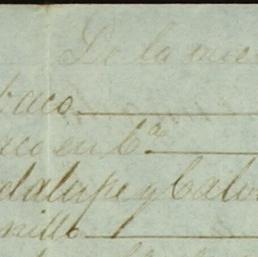 De la mis
baco
aco en Cª
dalupe y Calv
nillo